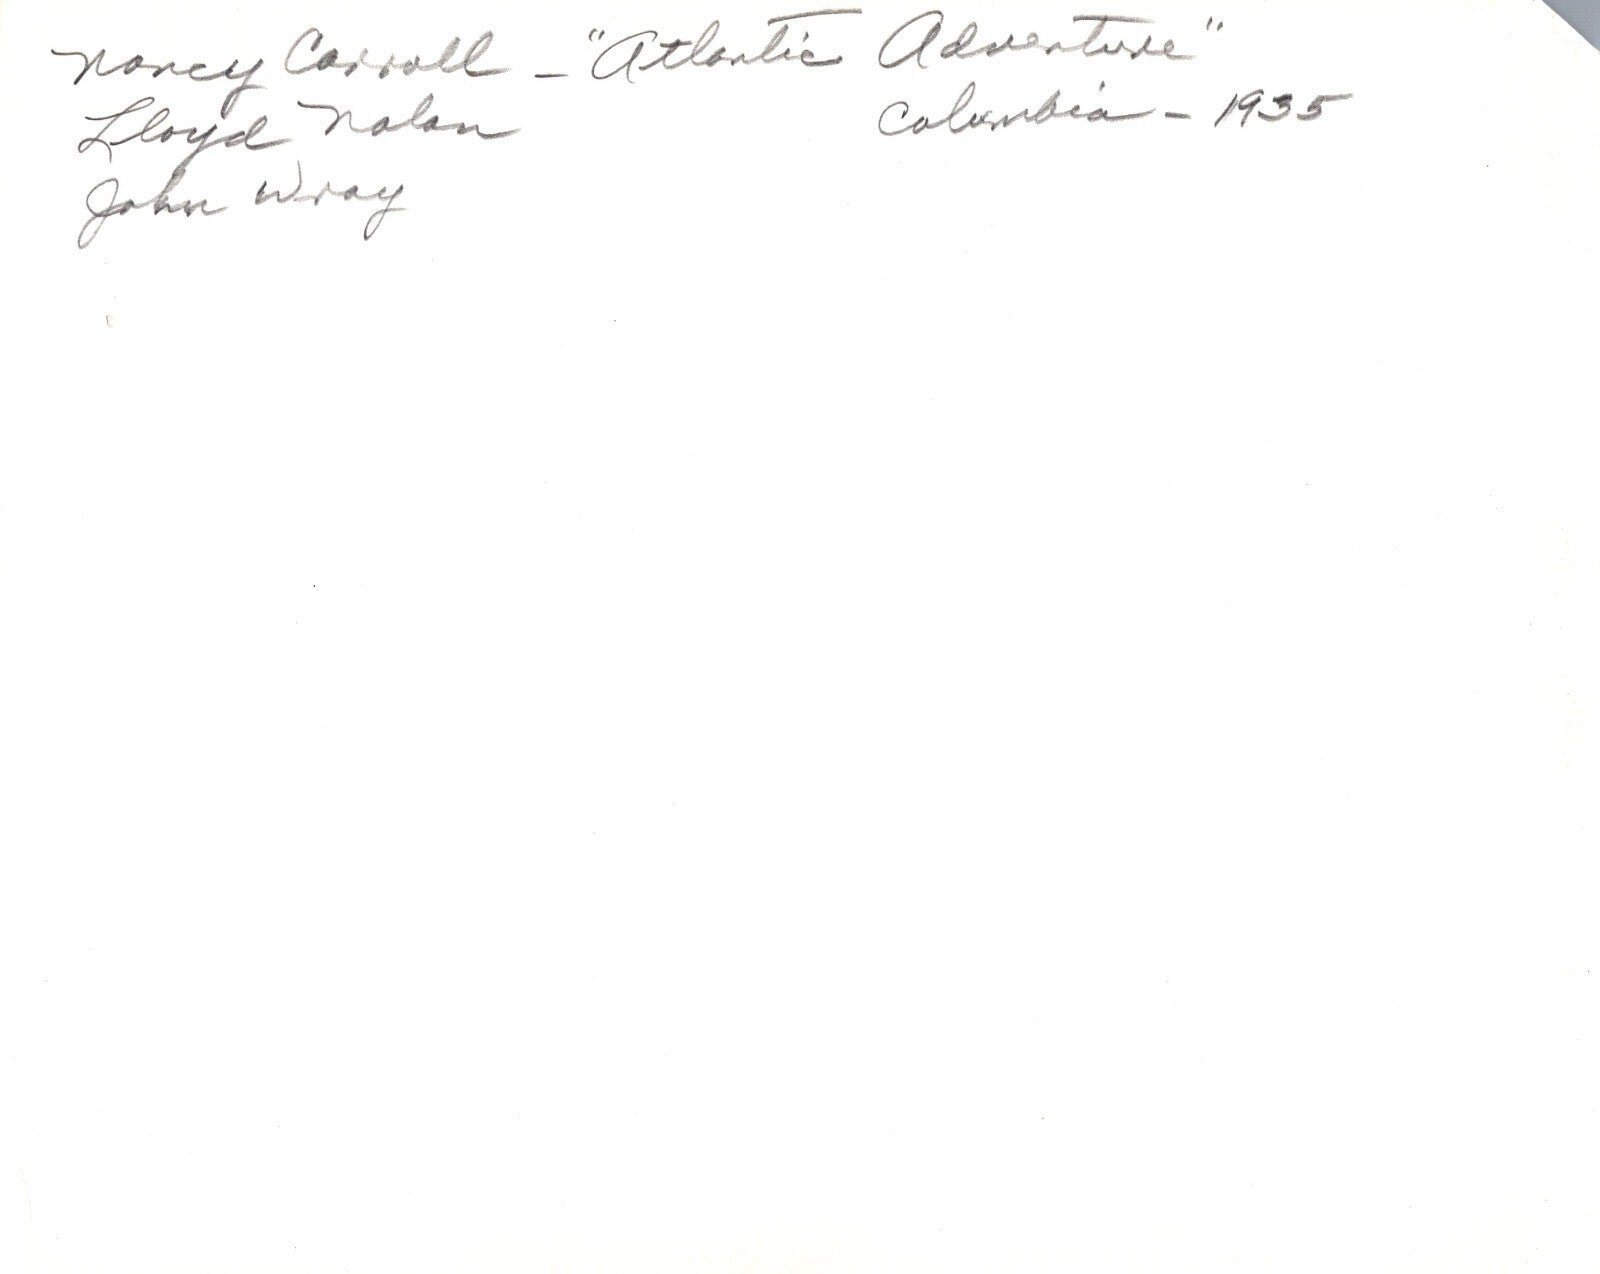 Nancy Carroll - "Atlantic Adventure"
Lloyd Nolan Columbia - 1935
John Wray